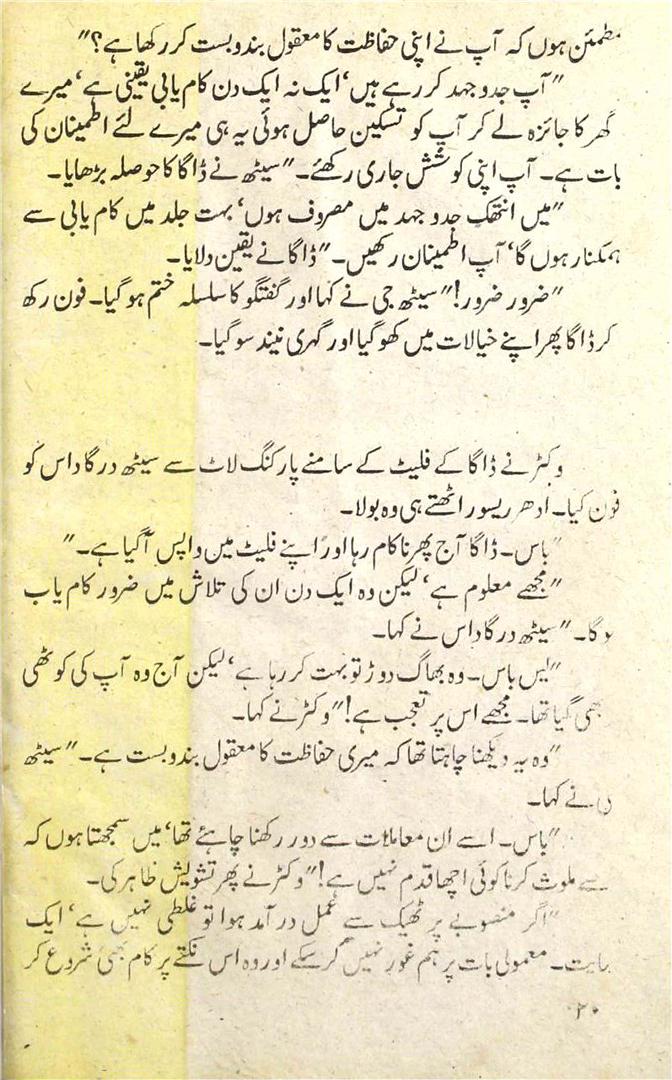 مطمئن ہوں کہ آپ نے اپنی حفاظت کا معقول بندوبست کر رکھا ہے؟"
"آپ جدوجہد کر رہے ہیں‘ ایک نہ ایک دن کام یابی یقینی ہے‘ میرے
گھر کا جائزہ لے کر آپ کو تسکین حاصل ہوئی یہ ہی میرے لئے اطمینان کی
بات ہے۔ آپ اپنی کوشش جاری رکھئے۔" سیٹھ نے ڈاگا کا حوصلہ بڑھایا۔
"میں انتھک جدوجہد میں مصروف ہوں‘ بہت جلد میں کام یابی سے
ہمکنار ہوں گا‘ آپ اطمینان رکھیں۔" ڈاگا نے یقین دلایا۔
"ضرور ضرور!" سیٹھ جی نے کہا اور گفتگو کا سلسلہ ختم ہو گیا۔ فون رکھ
کر ڈاگا پھر اپنے خیالات میں کھو گیا اور گہری نیند سو گیا۔
وکٹر نے ڈاگا کے فلیٹ کے سامنے پارکنگ لاٹ سے سیٹھ درگا داس کو
فون کیا۔ ادھر ریسور اٹھتے ہی وہ بولا۔
"باس۔ ڈاگا آج پھر ناکام رہا اور اپنے فلیٹ میں واپس آ گیا ہے۔"
"مجھے معلوم ہے‘ لیکن وہ ایک دن ان کی تلاش میں ضرور کام یاب
ہو گا۔" سیٹھ درگا داس نے کہا۔
"یس باس۔ وہ بھاگ دوڑ تو بہت کر رہا ہے‘ لیکن آج وہ آپ کی کوٹھی
بھی گیا تھا۔ مجھے اس پر تعجب ہے!" وکٹر نے کہا۔
"وہ یہ دیکھنا چاہتا تھا کہ میری حفاظت کا معقول بندوبست ہے۔" سیٹھ
نے کہا۔
"باس۔ اسے ان معاملات سے دور رکھنا چاہئے تھا‘ میں سمجھتا ہوں کہ
سے ملوث کرنا کوئی اچھا قدم نہیں ہے!" وکٹر نے پھر تشویش ظاہر کی۔
"اگر منصوبے پر ٹھیک سے عمل در آمد ہوا تو غلطی نہیں ہے‘ ایک
معمولی بات پر ہم غور نہیں کر سکے اور وہ اس نکتے پر کام بھی شروع کر
۲۰